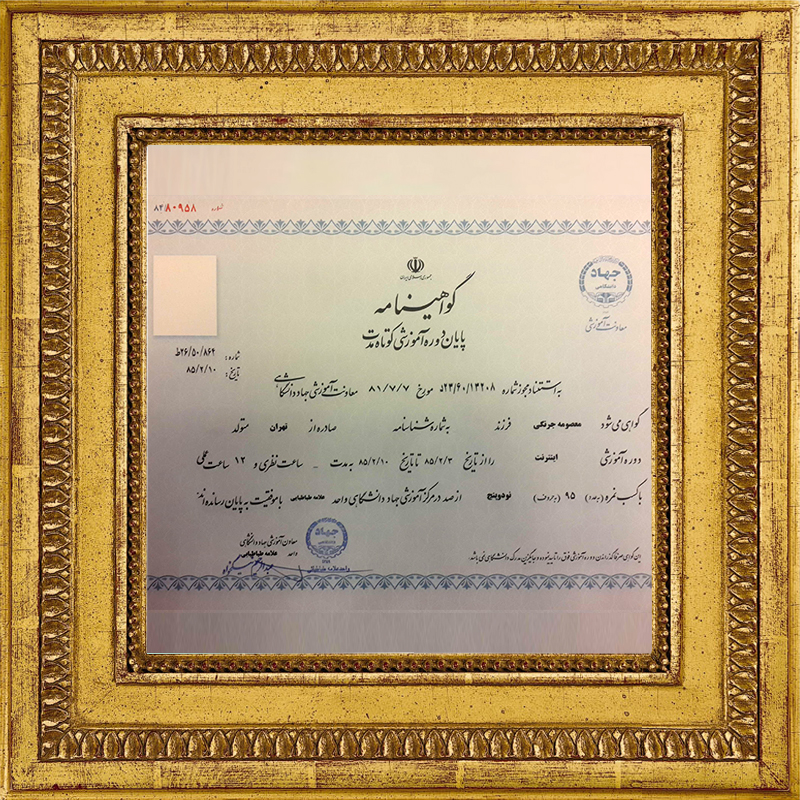 شماره ۸۴۸۰۹۵۸
جمهوری اسلامی ایران
جهاد
دانشگاهی
معاونت آموزشی
گواهینامه
پایان دوره آموزشی کوتاه مدت
شماره: ۲۶/۵۰/۸۶۴ط
تاریخ: ۸۵/۲/۱۰
به استناد مجوز شماره ۲۴/۶۰/۱۳۲۰۸د مورخ ۸۱/۷/۷ معاونت آموزشی جهاد دانشگاهی
گواهی می شود معصومه جرنگی فرزند به شماره شناسنامه صادره از تهران متولد
دوره آموزشی اینترنت را از تاریخ ۸۵/۲/۳ تا تاریخ ۸۵/۲/۱۰ به مدت _ ساعت نظری و ۱۲ ساعت عملی
با کسب نمره (بعدد) ۹۵ (بحروف) نود و پنج از صد در مرکز آموزشی جهاد دانشگاهی واحد علامه طباطبایی با موفقیت به پایان رسانده اند.
معاون آموزشی جهاد دانشگاهی
واحد علامه طباطبایی
جهاد
دانشگاهی
واحد علامه طباطبائی
این گواهی صرفاً گذراندن دوره آموزشی فوق را تایید نموده و جایگزین مدرک دانشگاهی نمی باشد.